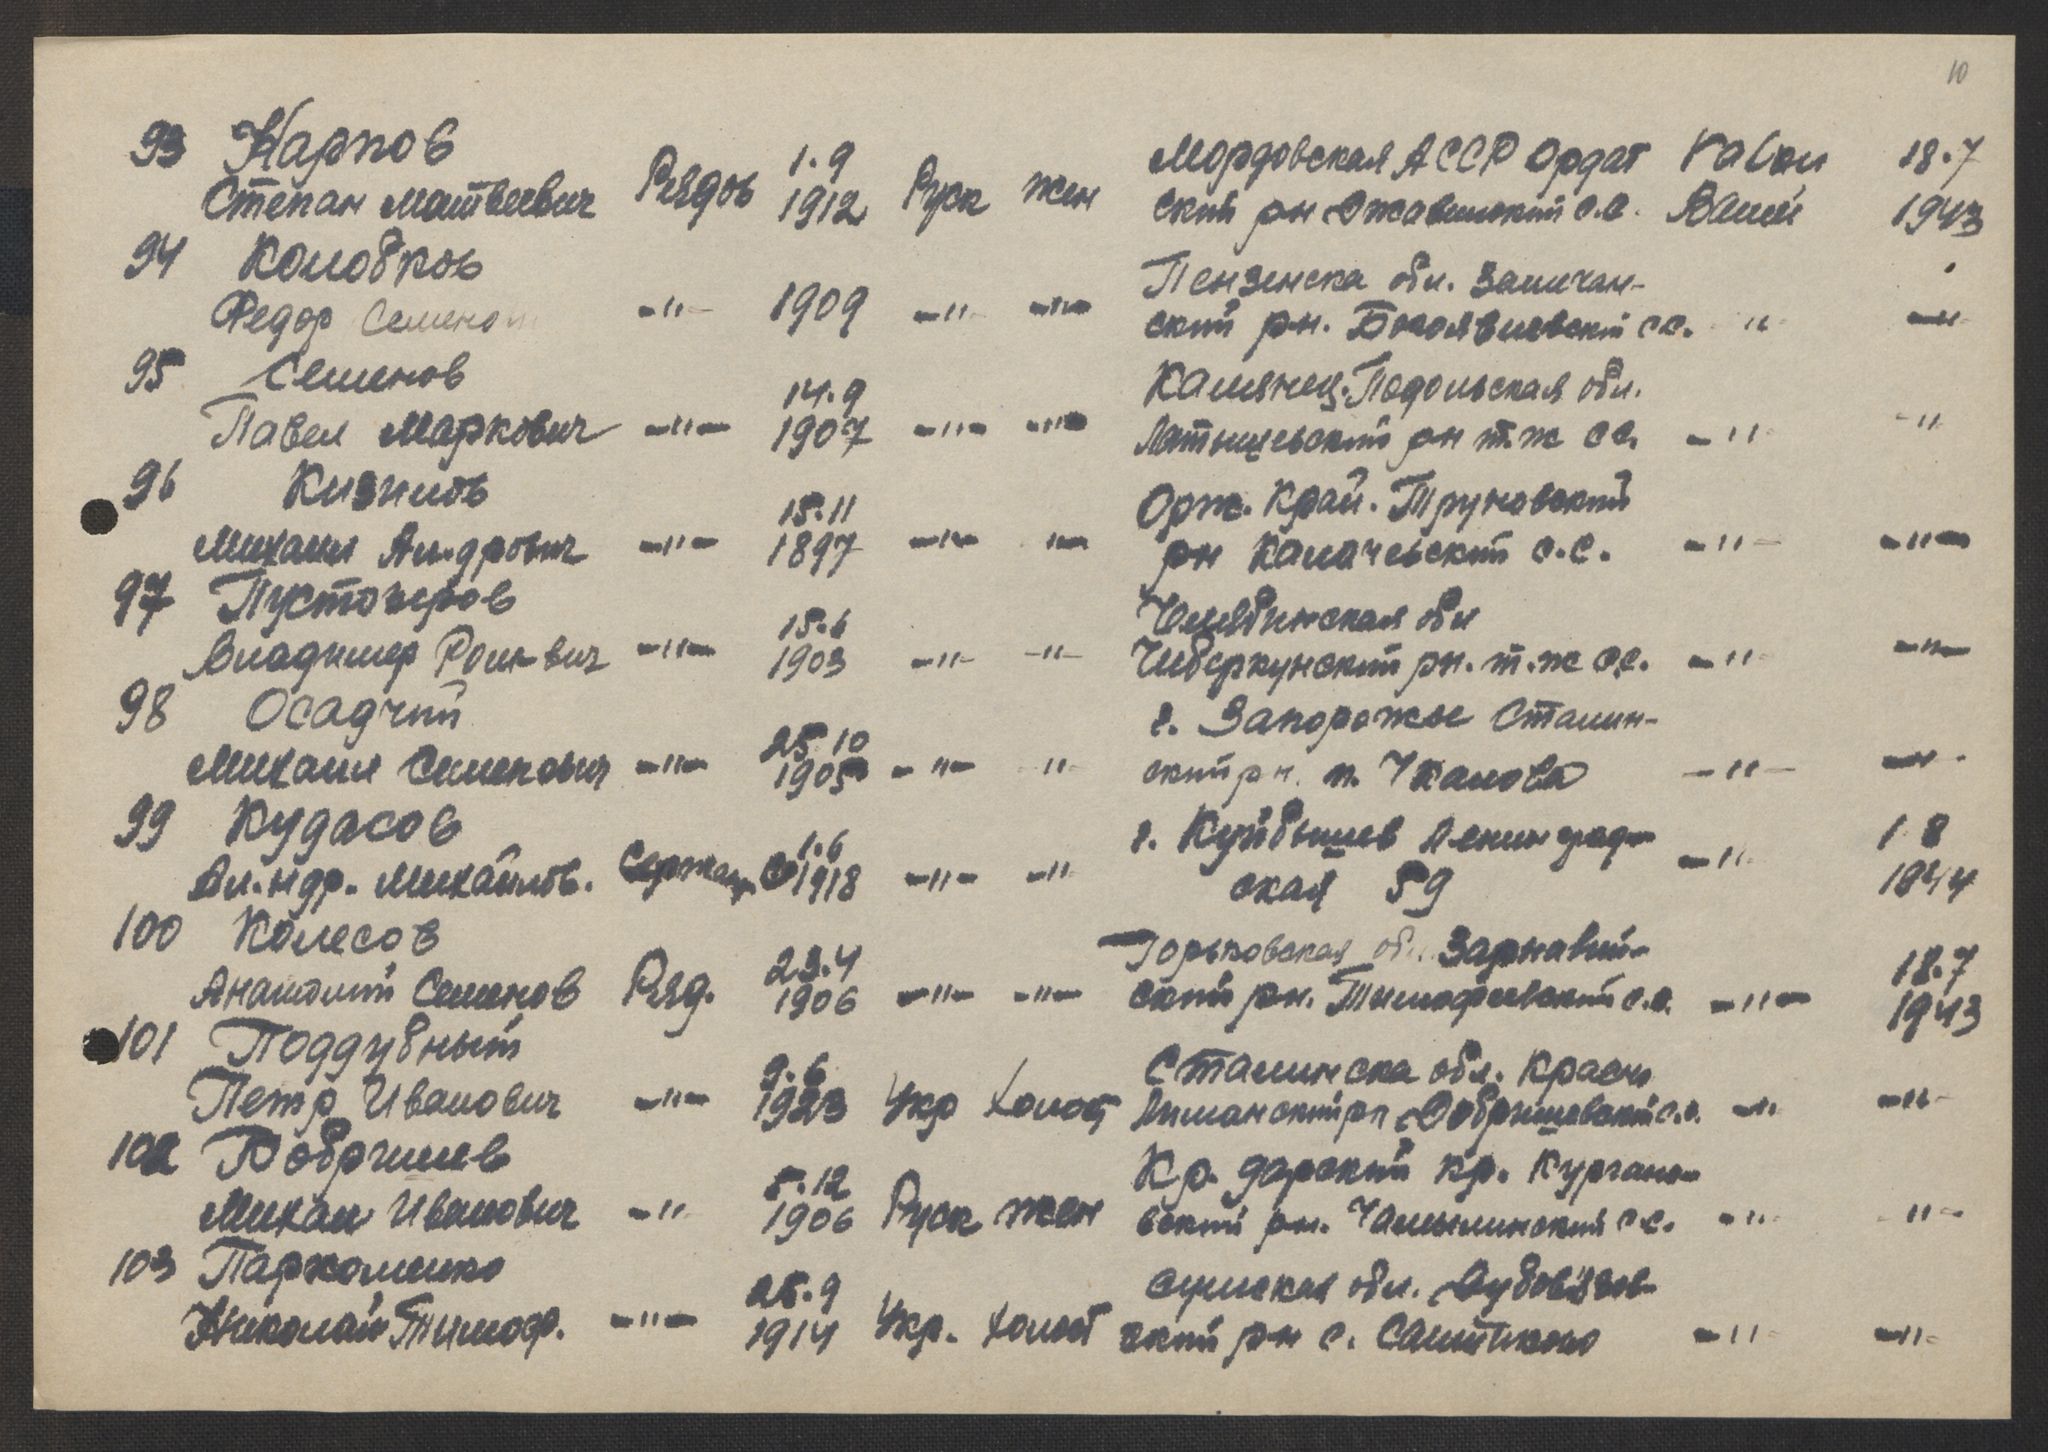 10
93 Карпов
Степан Матвеевич Рядов 1.9 1912 Руск жен Мордовская АССР Ордат
ский рн с.с. 18.7 1943
94 Колобков
Федор Семенов -"- 1909 -"- -"- Пензенска обл. Земичан-
ский рн. Богоявлевский с.с. -"- -"-
95 Семенов
Павел Маркович -"- 14.9 1907 -"- -"- Камянец-Подольская обл.
рн т.ж с.с. -"- -"-
96 Кизилов
Михаил Ал.дрович -"- 15.11 1897 -"- -"- Орж. Край. Труновский
рн Калачевский с.с. -"- -"-
97 Пустозеров
Владимер -"- 15.6 1903 -"- -"- Челябинская обл
Чебаркунский рн. т.ж с.с. -"- -"-
98 Осадчий
Михаил Семенович -"- 25.10 1905 -"- -"- г. Запорожье Сталин-
ский рн. п. Чкалова -"- -"-
99 Кудасов
Ал.ндр. Михайлов. Сержант 1.6 1918 -"- -"- г. Куйбышев Ленинград-
ская 59 -"- 1 8 1944
100 Колесов
Анатолий Семенов Ряд. 23.4 1906 -"- -"- Горьковская об.
ский рн. Тимофеевский с.с. -"- 18.7 1943
101 Поддубный
Петр Иванович -"- 9.6 1923 Укр Холост Сталинска обл. Красн
Лиманский рн Добрышевский с.с. -"- -"-
102 Бобрышев
Михаил Иванович -"- 5.12 1906 Руск жен Кр. дарский кр. Кургано-
вский рн. Чамлынский с.с. -"- -"-
103 Пархоменко
Николай Тимоф. -"- 25.9 1914 Укр. Холост Сумская обл. Дубовязов-
ский рн с. -"- -"-